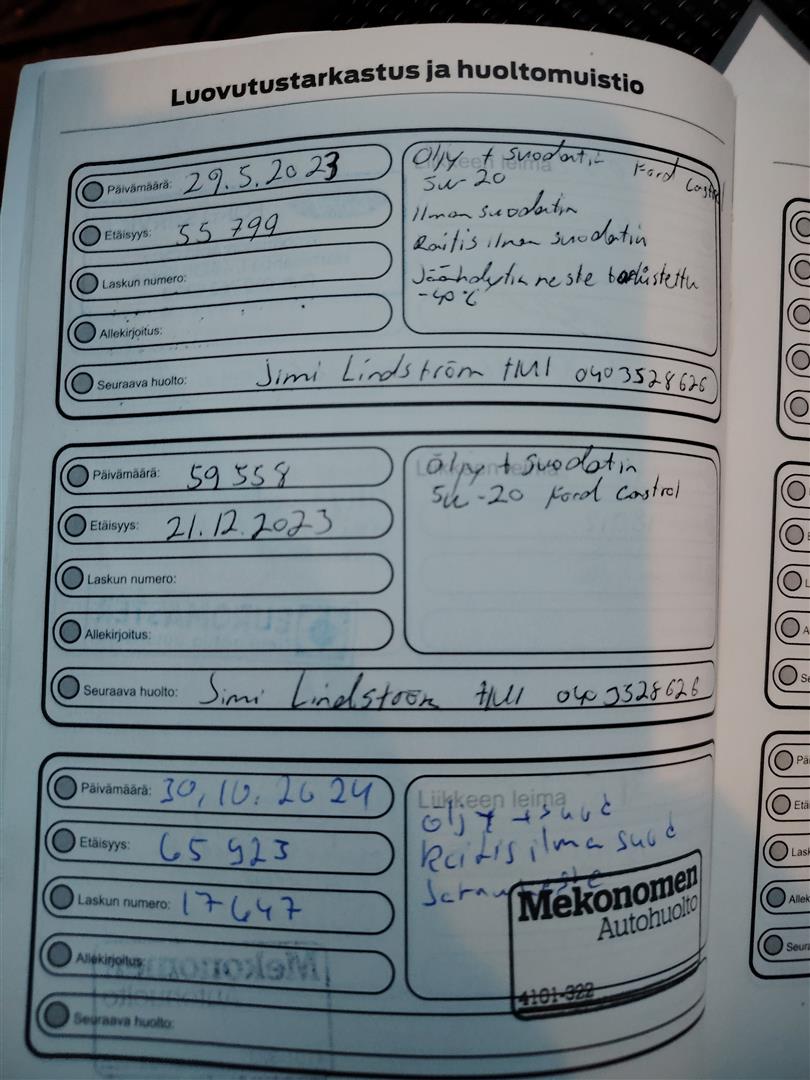 Luovutustarkastus ja huoltomuistio
Päivämäärä: 29.5.2023
Etäisyys: 55 799
Laskun numero:
Allekirjoitus:
Seuraava huolto: Jimi Lindström HUI 040 3528626
Liikkeen leima
Öljy + suodatin Ford Castrol
5w-20
Ilman suodatin
Raitis ilman suodatin
Jäähdytin neste tarkistettu
-40°C
Päivämäärä: 59 558
Etäisyys: 21.12.2023
Laskun numero:
Allekirjoitus:
Seuraava huolto: Jimi Lindström HUI 040 3528626
Liikkeen leima
Öljy + suodatin
5w-20 Ford Castrol
Päivämäärä: 30.10.2024
Etäisyys: 65 923
Laskun numero: 17647
Allekirjoitus:
Seuraava huolto:
Liikkeen leima
öljy + suod
Raitis ilma suod
Mekonomen
Autohuolto
4101-322